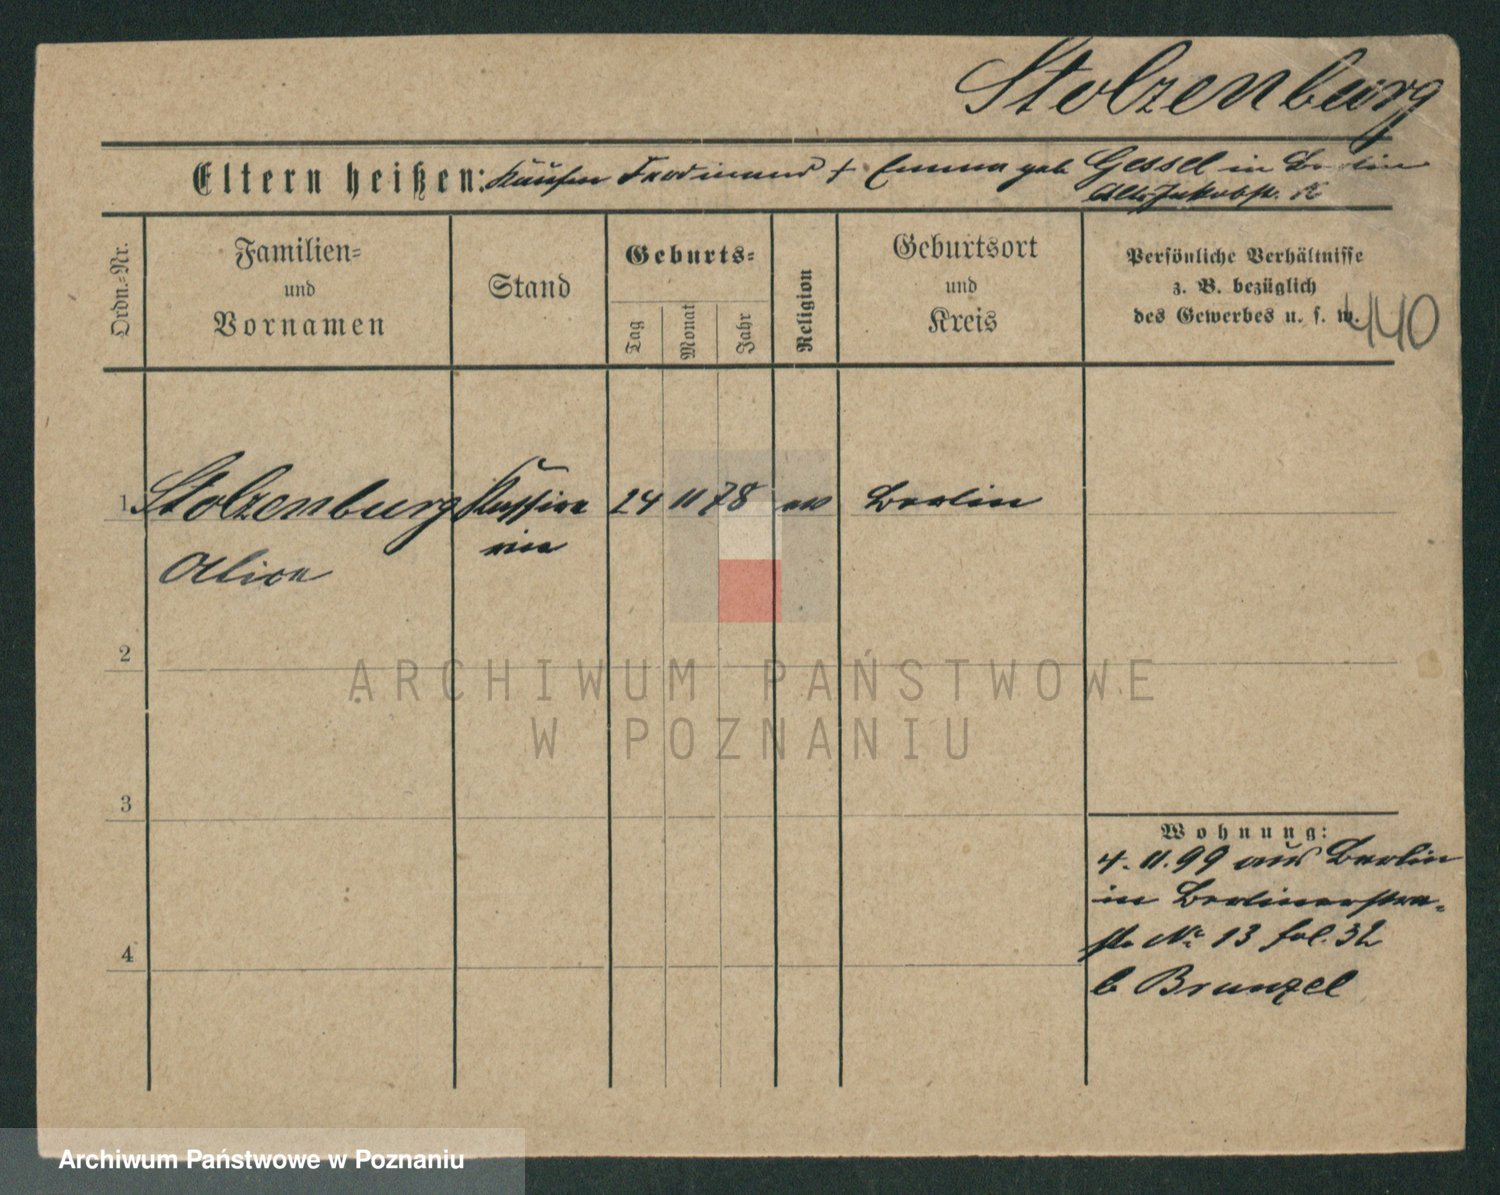 Stolzenburg
Eltern heißen: Kaufm Ferdinand + Emma geb Gessel in Berlin
Alte Jakobstr.
Ordn.-Nr.
Familien-
und
Vornamen
Stand
Geburts-
Tag
Monat
Jahr
Religion
Geburtsort
und
Kreis
Persönliche Verhältnisse
z. B. bezüglich
des Gewerbes u. s. w.
440
1 Stolzenburg Kassire 24 11 78 ev Berlin
rin
Alice
2
ARCHIWUM PAŃSTWOWE
W POZNANIU
3
Wohnung:
4. 11. 99 aus Berlin
in Berlinerstra-
ße No 13 fol. 32
4
b Brunzel
Archiwum Państwowe w Poznaniu